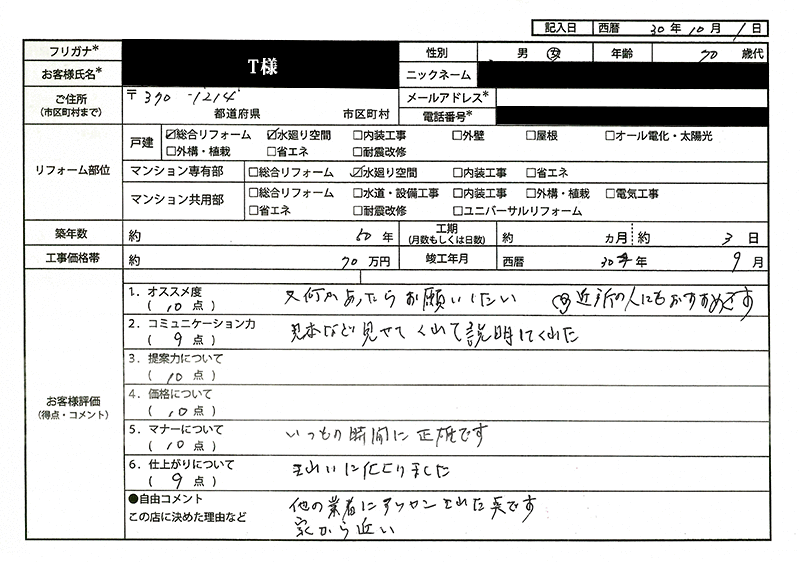 記入日 西暦 30年10月1日
フリガナ* T様 性別 男 女 年齢 70 歳代
お客様氏名* ニックネーム
ご住所 (市区町村まで) 〒390-1214 都道府県 市区町村 メールアドレス*
電話番号*
リフォーム部位 戸建 ☑総合リフォーム ☑水廻り空間 □内装工事 □外壁 □屋根 □オール電化・太陽光
□外構・植栽 □省エネ □耐震改修
マンション専有部 □総合リフォーム ☑水廻り空間 □内装工事 □省エネ
マンション共用部 □総合リフォーム □水道・設備工事 □内装工事 □外構・植栽 □電気工事
□省エネ □耐震改修 □ユニバーサルリフォーム
築年数 約 50 年 工期 (月数もしくは日数) 約 カ月 約 3 日
工事価格帯 約 70 万円 竣工年月 西暦 30年 9月
お客様評価 (得点・コメント)
1. オススメ度 (10点) 又何かあったらお願いしたい 近所の人にもおすすめです
2. コミュニケーション力 (9点) 見本など見せてくれて説明してくれた
3. 提案力について (10点)
4. 価格について (10点)
5. マナーについて (10点) いつもり時間に正確です
6. 仕上がりについて (9点) に仕上りました
●自由コメント 他の業者に です
この店に決めた理由など 家から近い